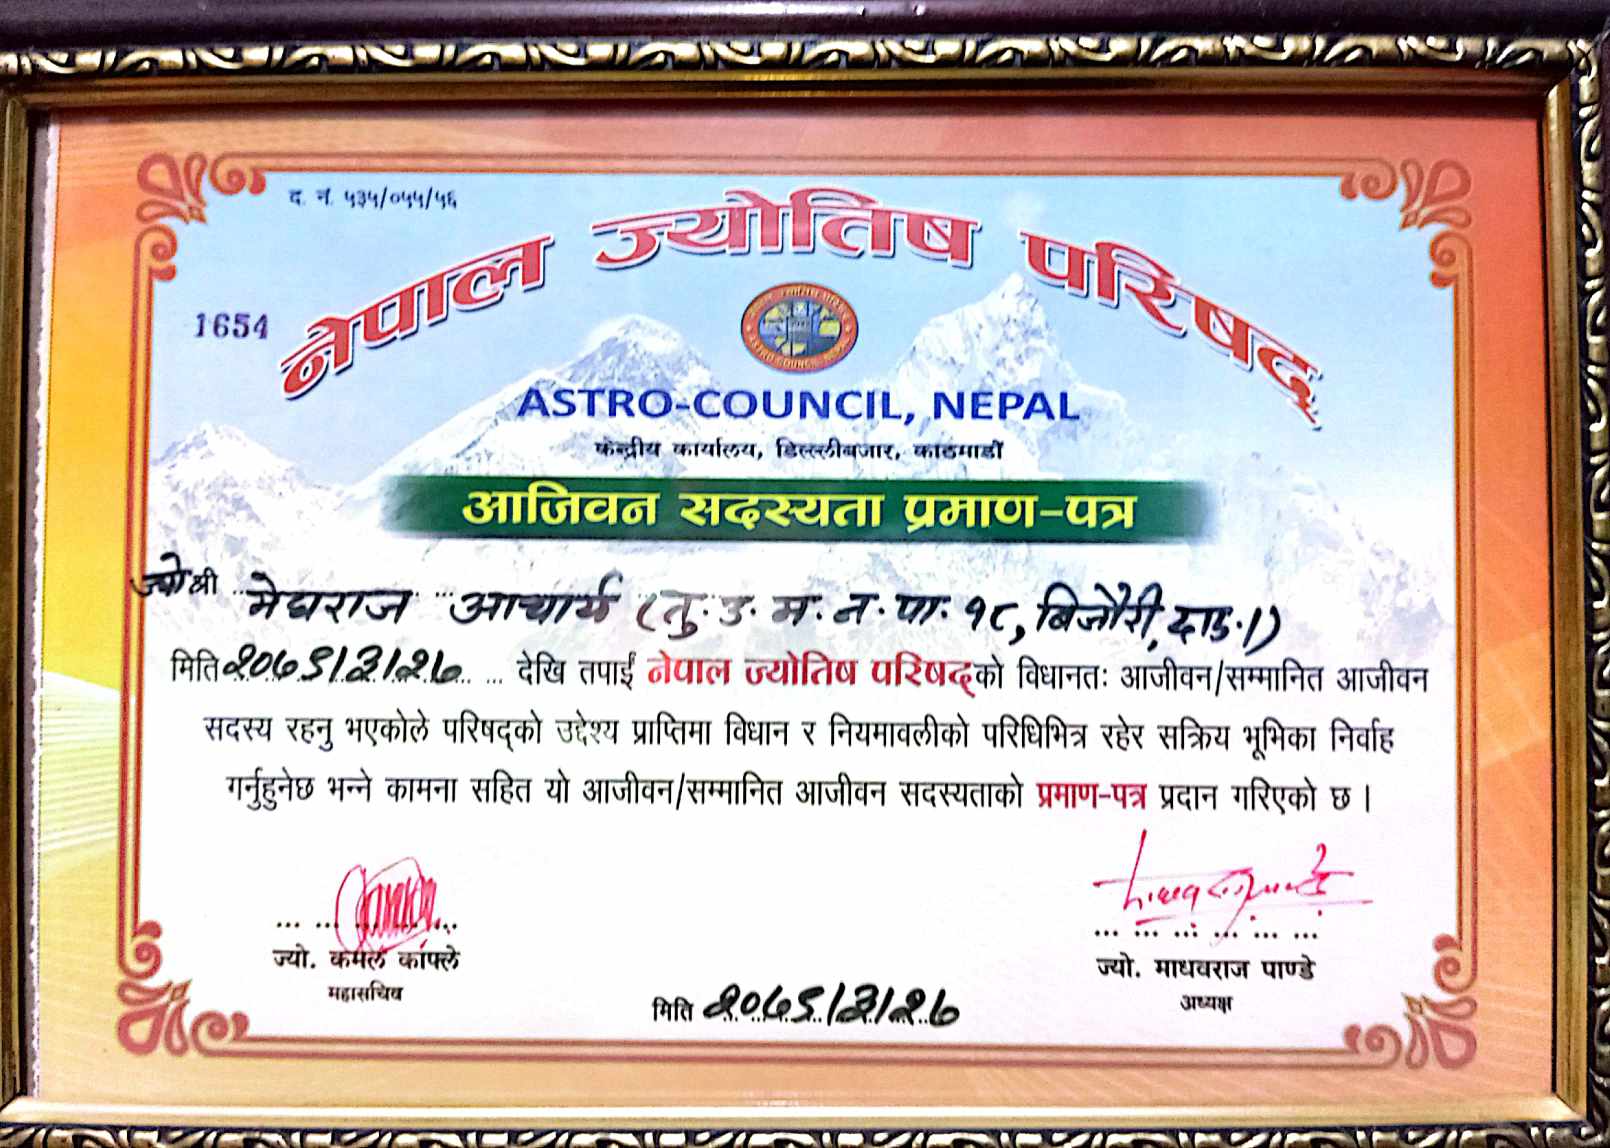 द. नं. ५३५/०५५/५६
नेपाल ज्योतिष परिषद्
1654
ASTRO-COUNCIL, NEPAL
केन्द्रीय कार्यालय, डिल्लीबजार, काठमाडौं
आजिवन सदस्यता प्रमाण-पत्र
ज्यो श्री मेघराज आचार्य (तु. उ. म. न. पा. १८, बिजौरी, दाङ ।)
मिति देखि तपाईं नेपाल ज्योतिष परिषद्को विधानतः आजीवन/सम्मानित आजीवन
सदस्य रहनु भएकोले परिषद्को उद्देश्य प्राप्तिमा विधान र नियमावलीको परिधिभित्र रहेर सक्रिय भूमिका निर्वाह
गर्नुहुनेछ भन्ने कामना सहित यो आजीवन/सम्मानित आजीवन सदस्यताको प्रमाण-पत्र प्रदान गरिएको छ ।
ज्यो. कमल काफ्ले
महासचिव
ज्यो. माधवराज पाण्डे
अध्यक्ष
मिति